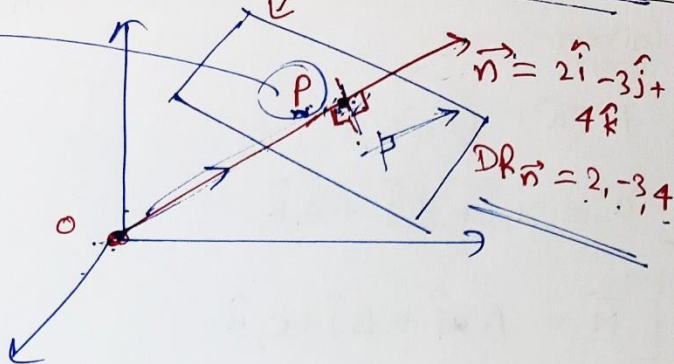 P
n⃗ = 2î - 3ĵ +
4k̂
DR n⃗ = 2, -3, 4
O